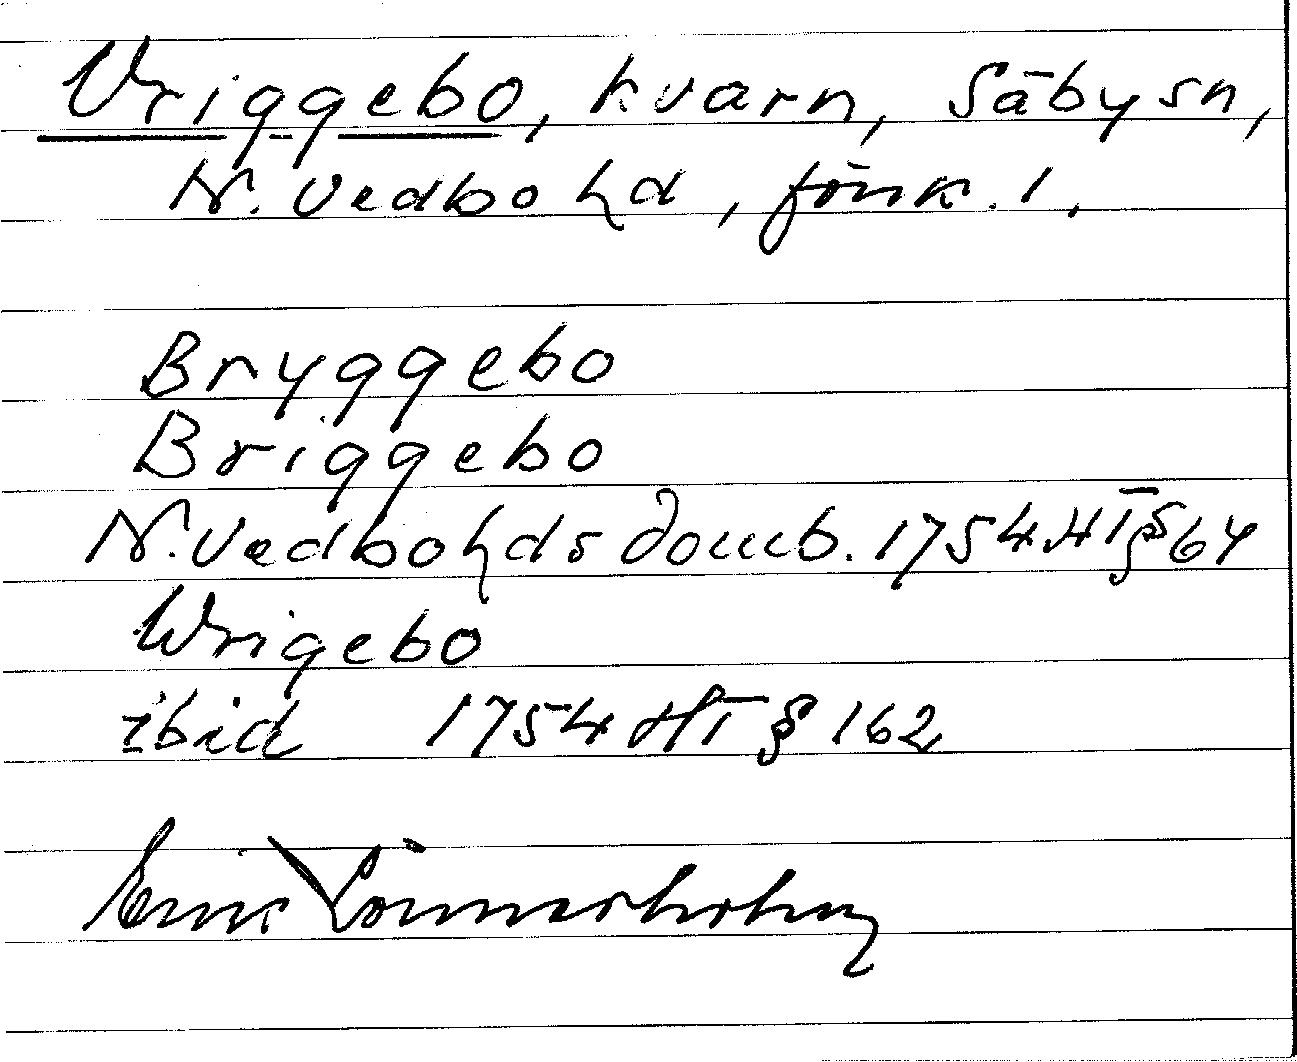 Vriggebo, kvarn, Säby sn,
N. Vedbo hd, Jönk. l.
Bryggebo
Briggebo
N. Vedbo hds domb. 1754 HT § 64
Wrigebo
ibid 1754 HT § 162
Eric Lönnerholm